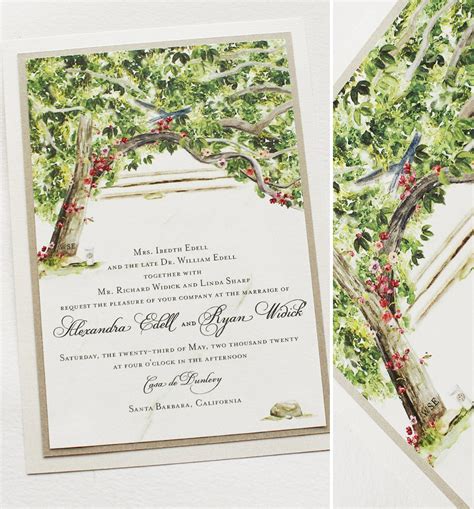 WSE
Mrs. Ibedth Edell
and the late Dr. William Edell
together with
Mr. Richard Widick and Linda Sharp
request the pleasure of your company at the marraige of
Alexandra Edell and Ryan Widick
Saturday, the twenty-third of May, two thousand twenty
at four o'clock in the afternoon
Casa de Dunlevy
Santa Barbara, California
WSE